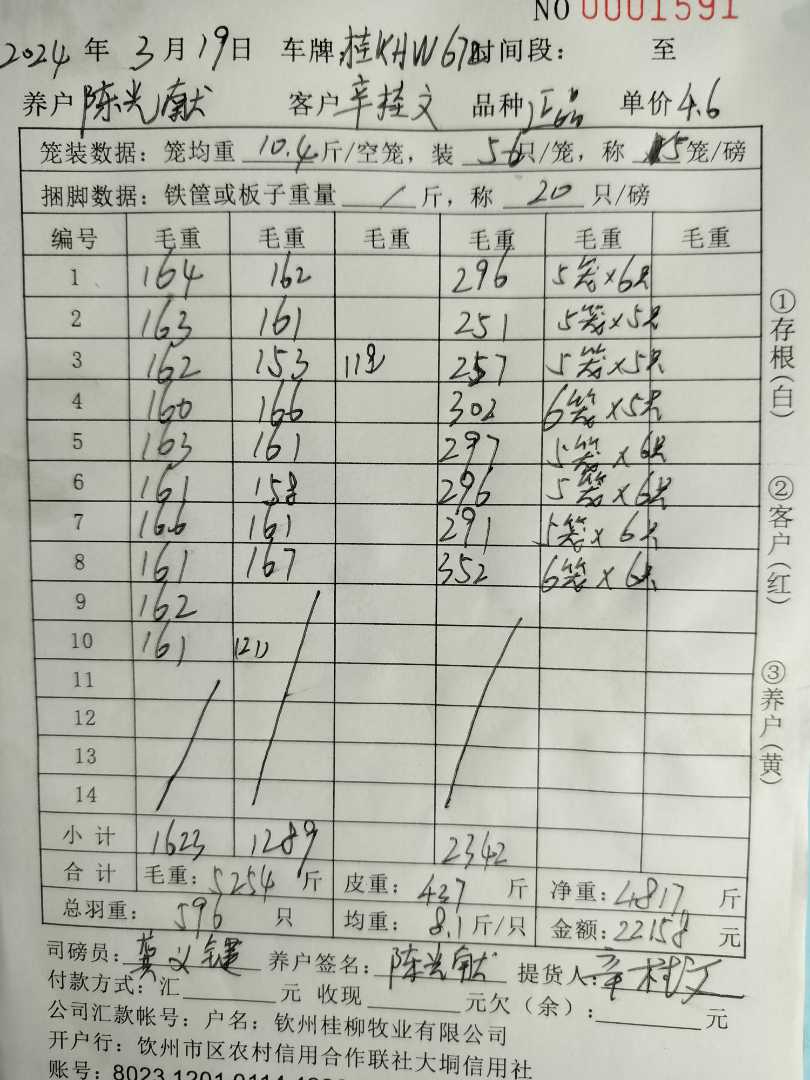 NO 0001591
2024 年 3 月 19 日 车牌: 桂KHW67 时间段: 至
养户 陈光献 客户 辛桂文 品种 正品 单价 4.6
笼装数据: 笼均重 10.4 斤/空笼, 装 5-6 只/笼, 称 5 笼/磅
捆脚数据: 铁筐或板子重量 / 斤, 称 20 只/磅
编号 毛重 毛重 毛重 毛重 毛重 毛重
1 164 162 296 5笼×6只
2 163 161 251 5笼×5只
3 162 153 257 5笼×5只
4 160 166 302 6笼×5只
5 163 161 297 5笼×6只
6 161 158 296 5笼×6只
7 166 161 291 5笼×6只
8 161 167 352 6笼×6只
9 162
10 161
11
12
13
14
小计 1623 1289 2342
合计 毛重: 5254 斤 皮重: 437 斤 净重: 4817 斤
总羽重: 596 只 均重: 8.1 斤/只 金额: 22158 元
司磅员: 养户签名: 陈光献 提货人: 辛桂文
付款方式: 汇 元 收现 元欠(余): 元
公司汇款帐号: 户名: 钦州桂柳牧业有限公司
开户行: 钦州市区农村信用合作联社大垌信用社
账号: 8023 1201 0114
①存根(白)
②客户(红)
③养户(黄)